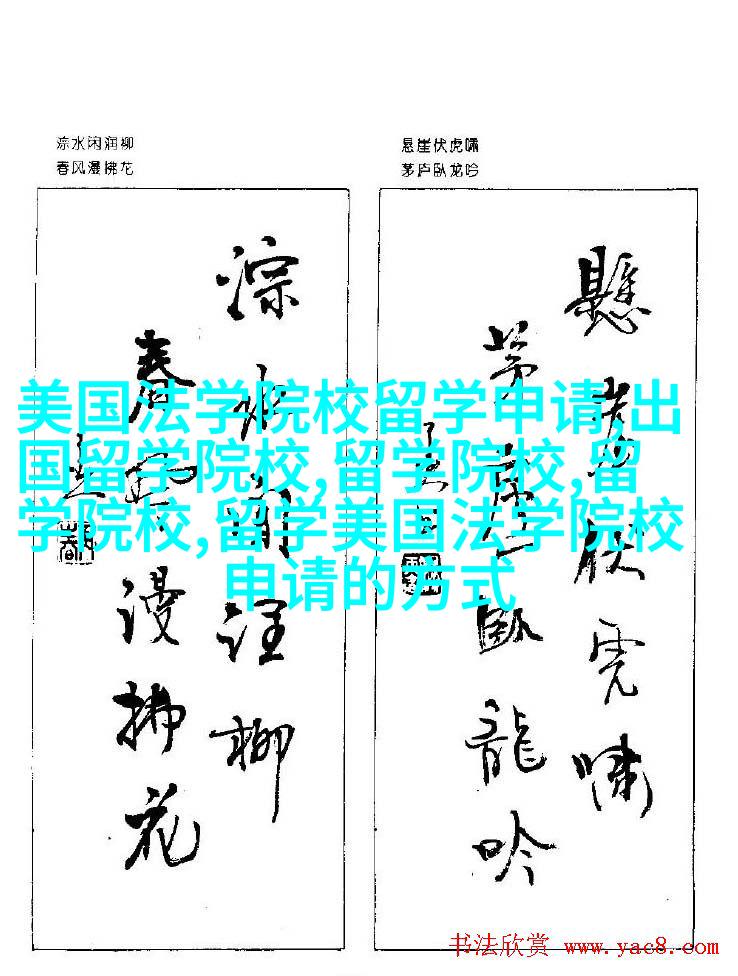 淙水闲润柳
春风漫拂花
悬崖伏虎嘯
茅庐卧龙吟
懸崖伏虎嘯
茅廬臥龍吟
淙水闲润柳
春風漫拂花
美国法学院校留学申请,出
国留学院校,留学院校,留
学院校,留学美国法学院校
申请的方式
书法欣赏 www.yac8.com